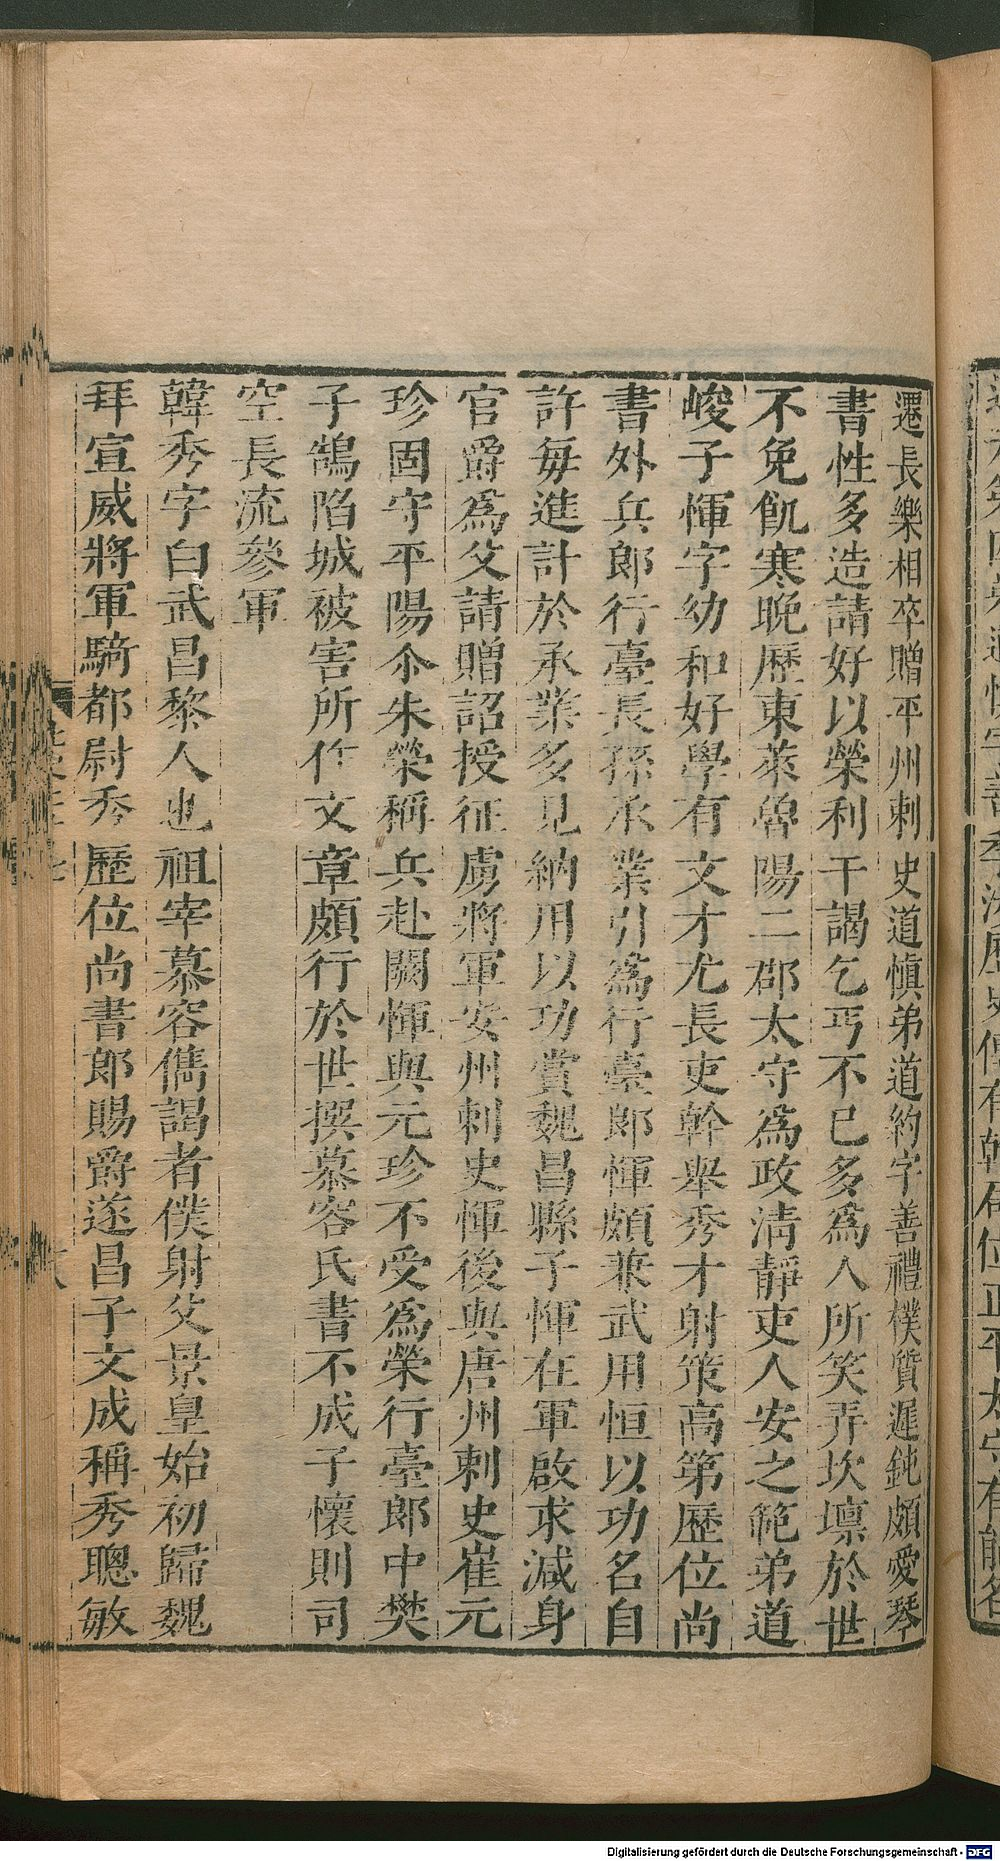 遷長樂相卒贈平州刺史道慎弟道約字善禮樸質遲鈍頗愛琴
書性多造請好以榮利干謁乞丐不已多爲人所笑弄坎壈於世
不免飢寒晚歷東萊魯陽二郡太守爲政清靜吏人安之範弟道
峻子惲字幼和好學有文才尤長吏幹舉秀才射策高第歷位尚
書外兵郎行臺長孫承業引爲行臺郎惲頗兼武用恒以功名自
許每進計於承業多見納用以功賞魏昌縣子惲在軍啟求減身
官爵爲父請贈詔授征虜將軍安州刺史惲後與唐州刺史崔元
珍固守平陽尒朱榮稱兵赴闕惲與元珍不受爲榮行臺郎中樊
子鵠陷城被害所作文章頗行於世撰慕容氏書不成子懷則司
空長流參軍
韓秀字白武昌黎人也祖宰慕容儁謁者僕射父景皇始初歸魏
拜宣威將軍騎都尉秀歷位尚書郎賜爵遂昌子文成稱秀聰敏
Digitalisierung gefördert durch die Deutsche Forschungsgemeinschaft - DFG